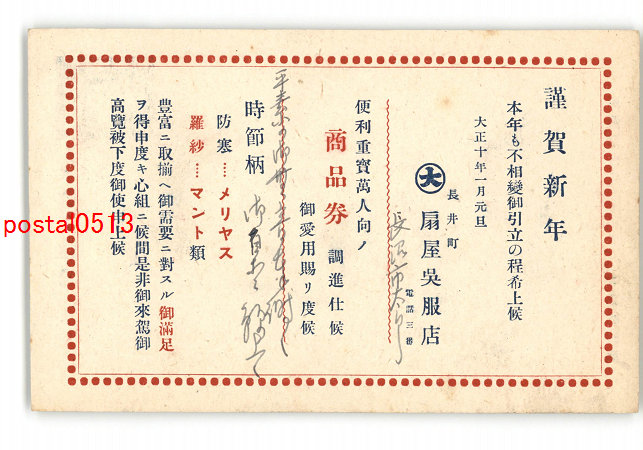 謹賀新年
本年も不相變御引立の程希上候
大正十年一月元旦
長井町
大 扇屋吳服店
電話三番
便利重寶萬人向ノ
商品券 調進仕候
御愛用賜リ度候
時節柄
防寒…メリヤス
羅紗…マント類
豊富ニ取揃ヘ御需要ニ對スル御滿足
ヲ得申度キ心組ニ候間是非御來駕御
高覽被下度御使申上候
postal0513